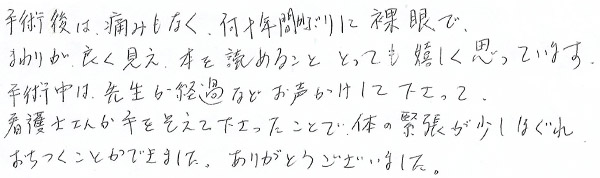 手術後は、痛みもなく、何十年間ぶりに裸眼で、
まわりが良く見え、本を読めること とっても嬉しく思っています。
手術中は、先生が経過などお声かけして下さって、
看護士さんが手をそえて下さったことで、体の緊張が少しほぐれ
おちつくことができました。ありがとうございました。